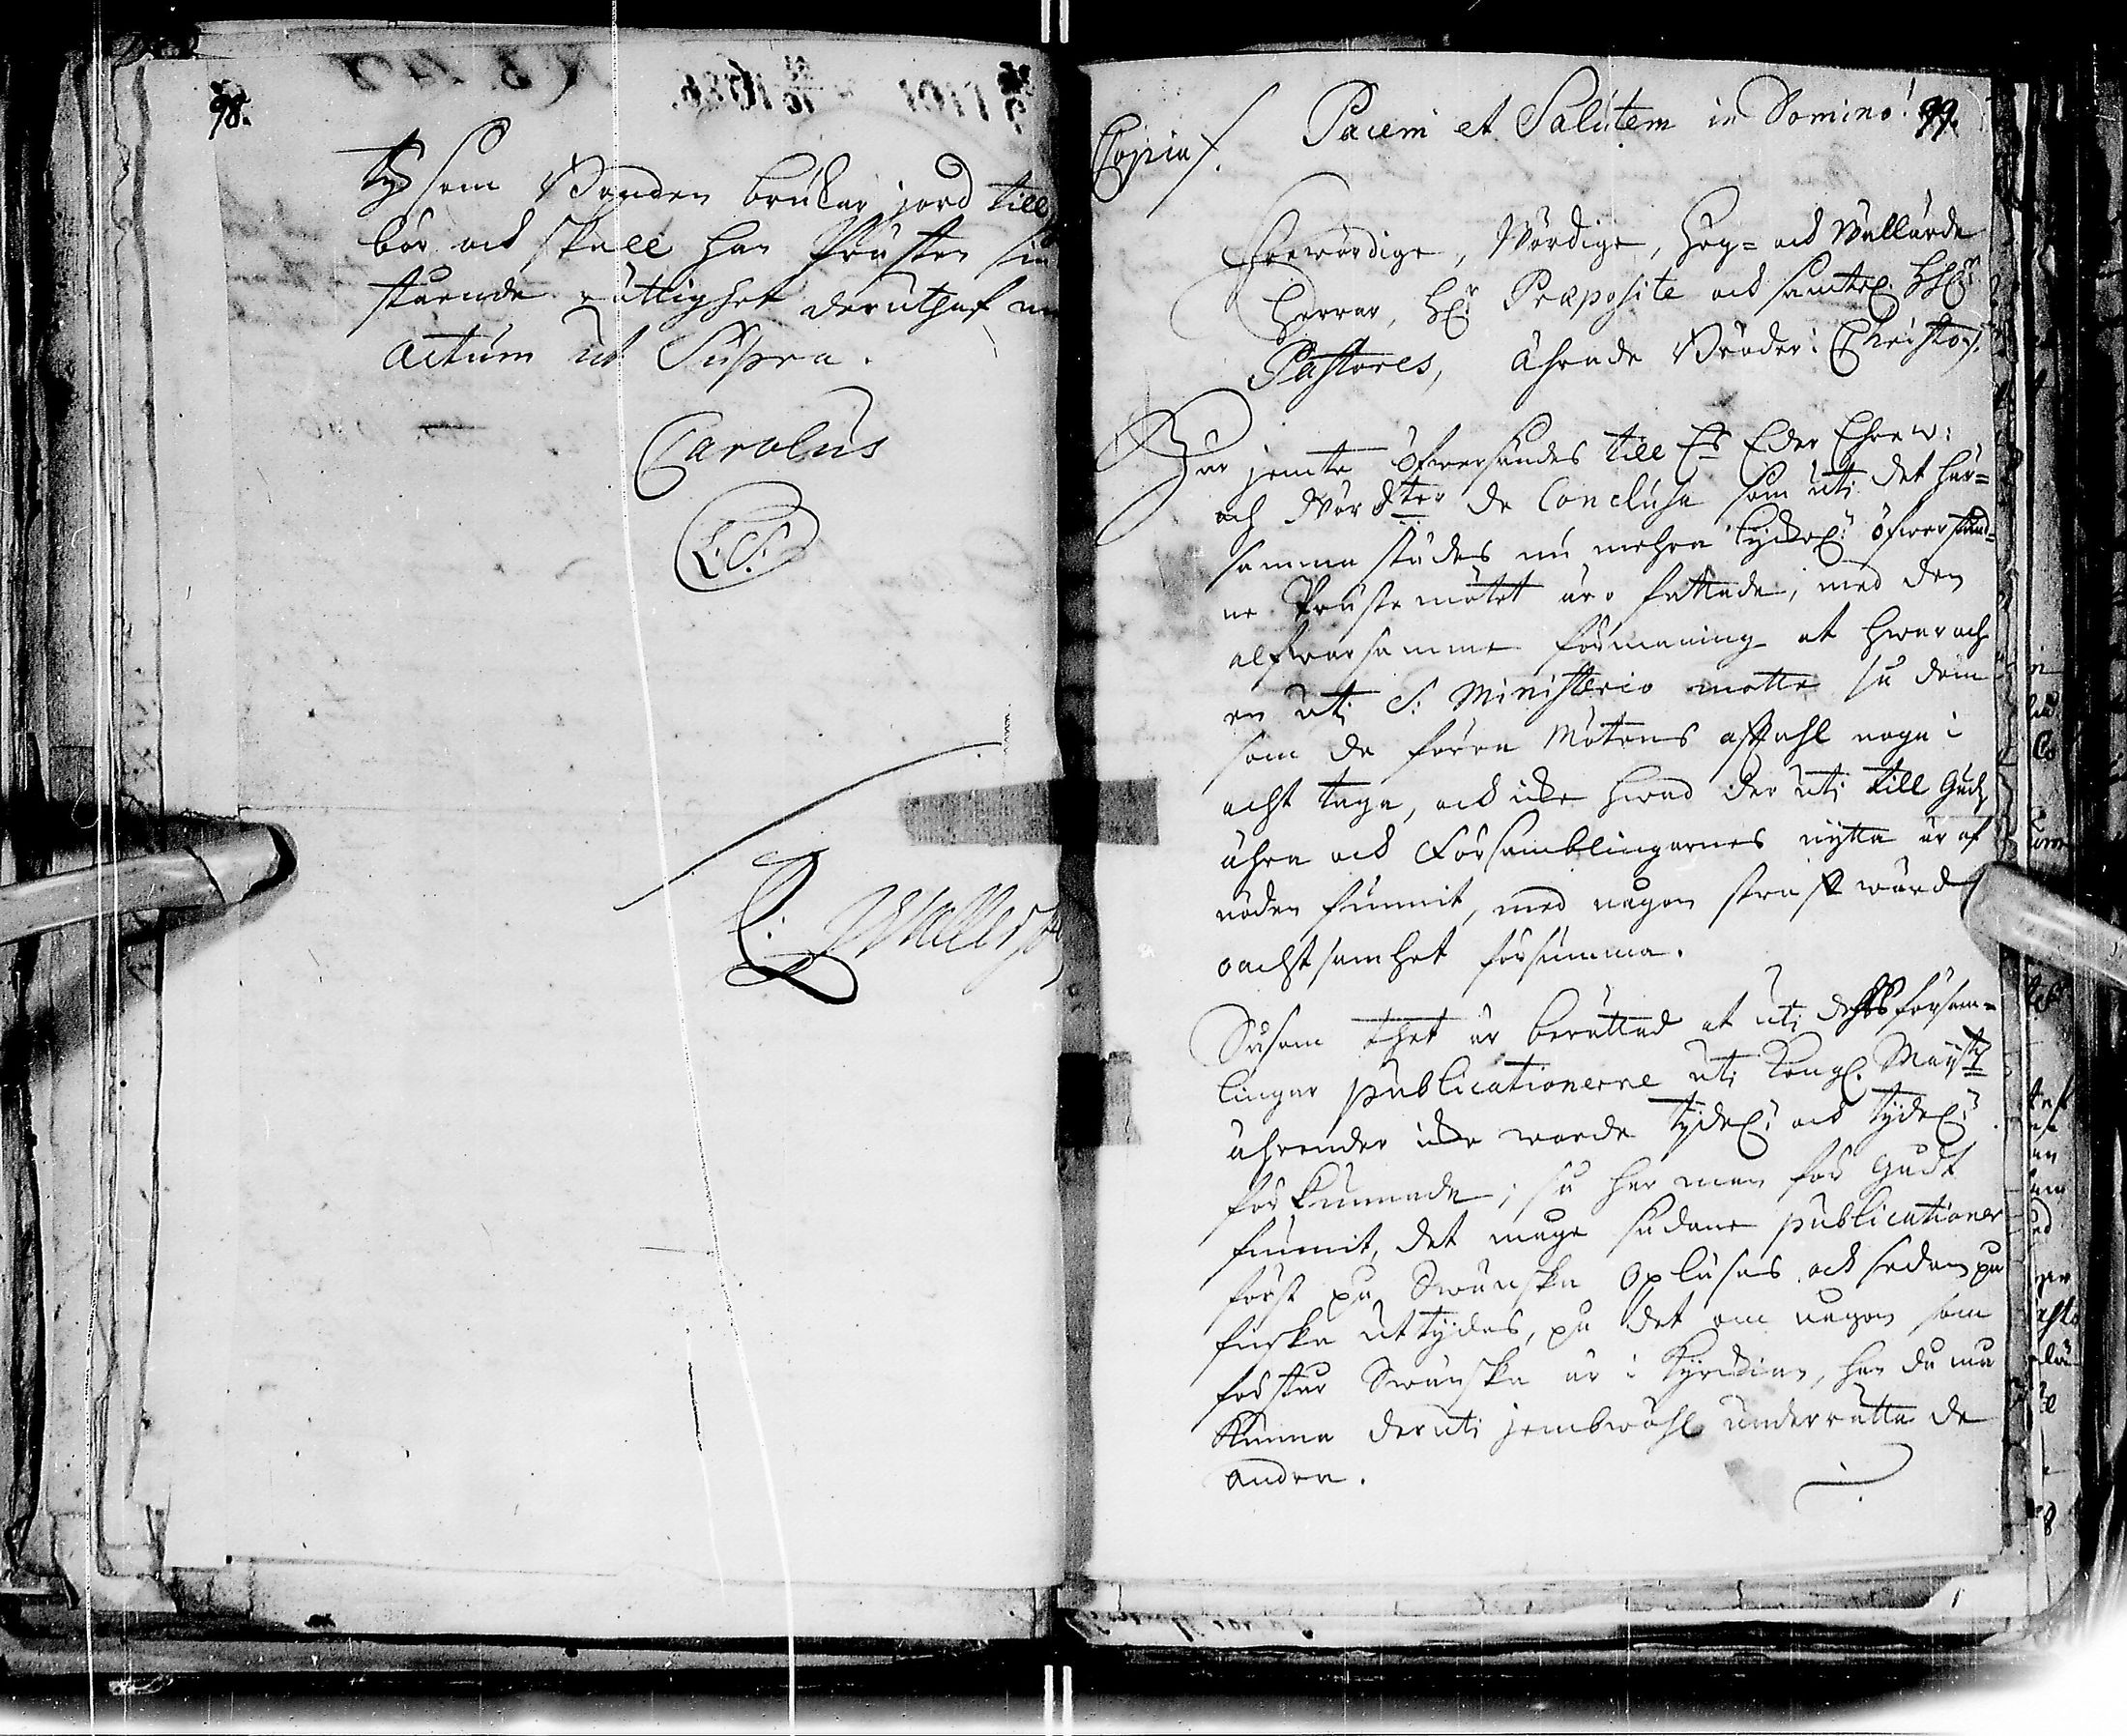 98.
ty som Bonden brukar jord till
bör ock skall han Prästen sin
stående rättighet derutaf
Actum ut Supra.
Carolus
L.S.
C: Waller
99.
Copia
Pacem et Salutem in Domino!
Ehrewördige, Wördige, Hög= och Wällärde
Herrar, H:r Præposite och samtel. HH:r
Pastores, Ährade Bröder i Christo.
Här jemte öfwersändes till Eder Ehrew:
och Wördter de Conclusa som uti det här=
samma städes nu mehra lyckel: öfwerstånd=
ne Prästemötet äro fattade, med den
alfwarsamme förmaning at hwar och
en uti S: Ministerio motte så dem
som de förra Mötens afskehl noga i
acht taga, och icke hwad der uti till Gudz
ähra och Församblingarnes nytta är af
nöden funnit, med någon straffwärd
oachtsamhet försumma.
Såsom thet är berättad at uti dehss försam=
lingar publicationerne uti Kongl. Maij:tz
ährender icke warda tydel: och tydel:
förkunnade; så har man för Gudt
funnit, det måge sådane publicationer
först på Swänska opläsas och sedan på
finska uttydas, på det om någon som
förstår Swänska är i Kyrckian, han då må
kunna deruti jembwähl underrätta de
andra.